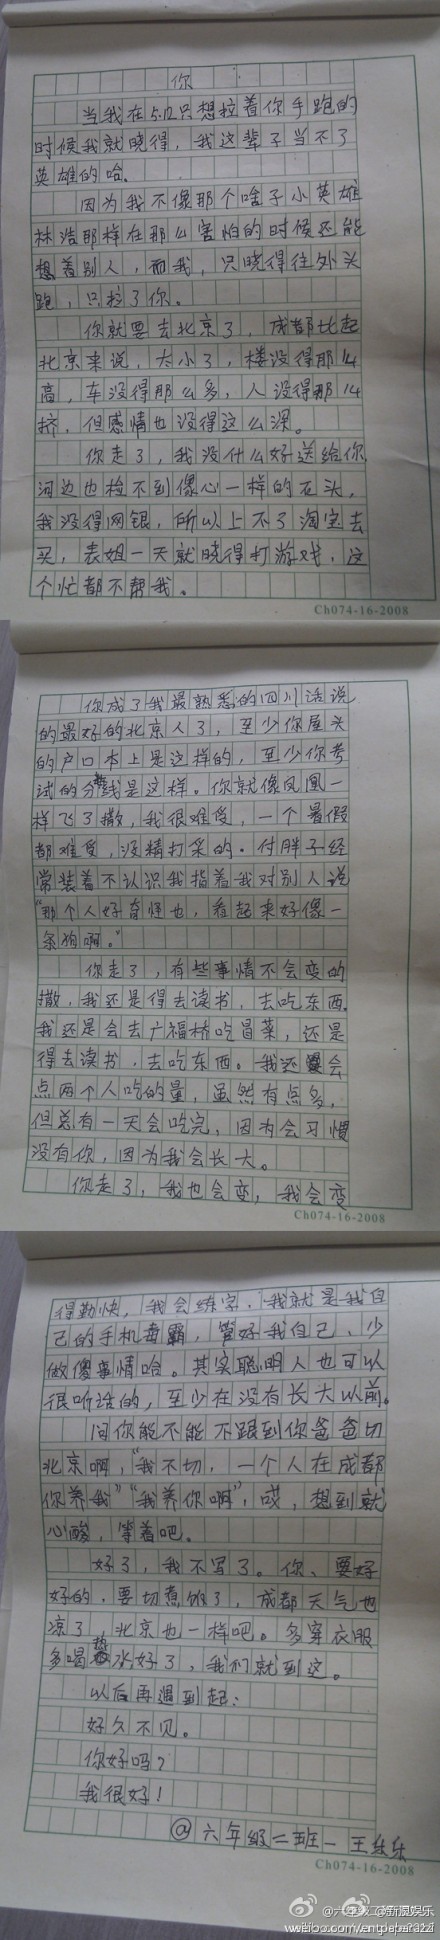 你
当我在5.12只想拉着你手跑的
时候我就晓得，我这辈子当不了
英雄的哈。
因为我不像那个啥子小英雄
林浩那样在那么害怕的时候还能
想着别人，而我，只晓得往外头
跑，只拉了你。
你就要去北京了，成都比起
北京来说，太小了，楼没得那么
高，车没得那么多，人没得那么
挤，但感情也没得这么深。
你走了，我没什么好送给你，
河边也捡不到像心一样的石头，
我没得网银，所以上不了淘宝去
买，表姐一天就晓得打游戏，这
个忙都不帮我。
Ch074-16-2008
你成了我最熟悉的四川话说
的最好的北京人了，至少你屋头
的户口本上是这样的，至少你考
试的分数线是这样。你就像凤凰一
样飞了撒，我很难受，一个暑假
都难受，没精打采的。付胖子经
常装着不认识我指着我对别人说
“那个人好奇怪也，看起来好像一
条狗啊。”
你走了，有些事情不会变的
撒，我还是得去读书，去吃东西。
我还是会去广福桥吃冒菜，还是
得去读书，去吃东西。我还会
点两个人吃的量，虽然有点多，
但总有一天会吃完，因为会习惯
没有你，因为我会长大。
你走了，我也会变，我会变
Ch074-16-2008
得勤快，我会练字，我就是我自
己的手机毒霸，管好我自己、少
做傻事情哈。其实聪明人也可以
很听话的，至少在没有长大以前。
问你能不能不跟到你爸爸切
北京啊，“我不切，一个人在成都
你养我”“我养你啊”，哎，想到就
心酸，等着吧。
好了，我不写了。你、要好
好的，要切煮饭了，成都天气也
凉了，北京也一样吧。多穿衣服
多喝热水好了，我们就到这。
以后再遇到起：
好久不见。
你好吗？
我很好！
@六年级二班一王乐乐
Ch074-16-2008
@新浪娱乐
weibo.com/entpaparazzi